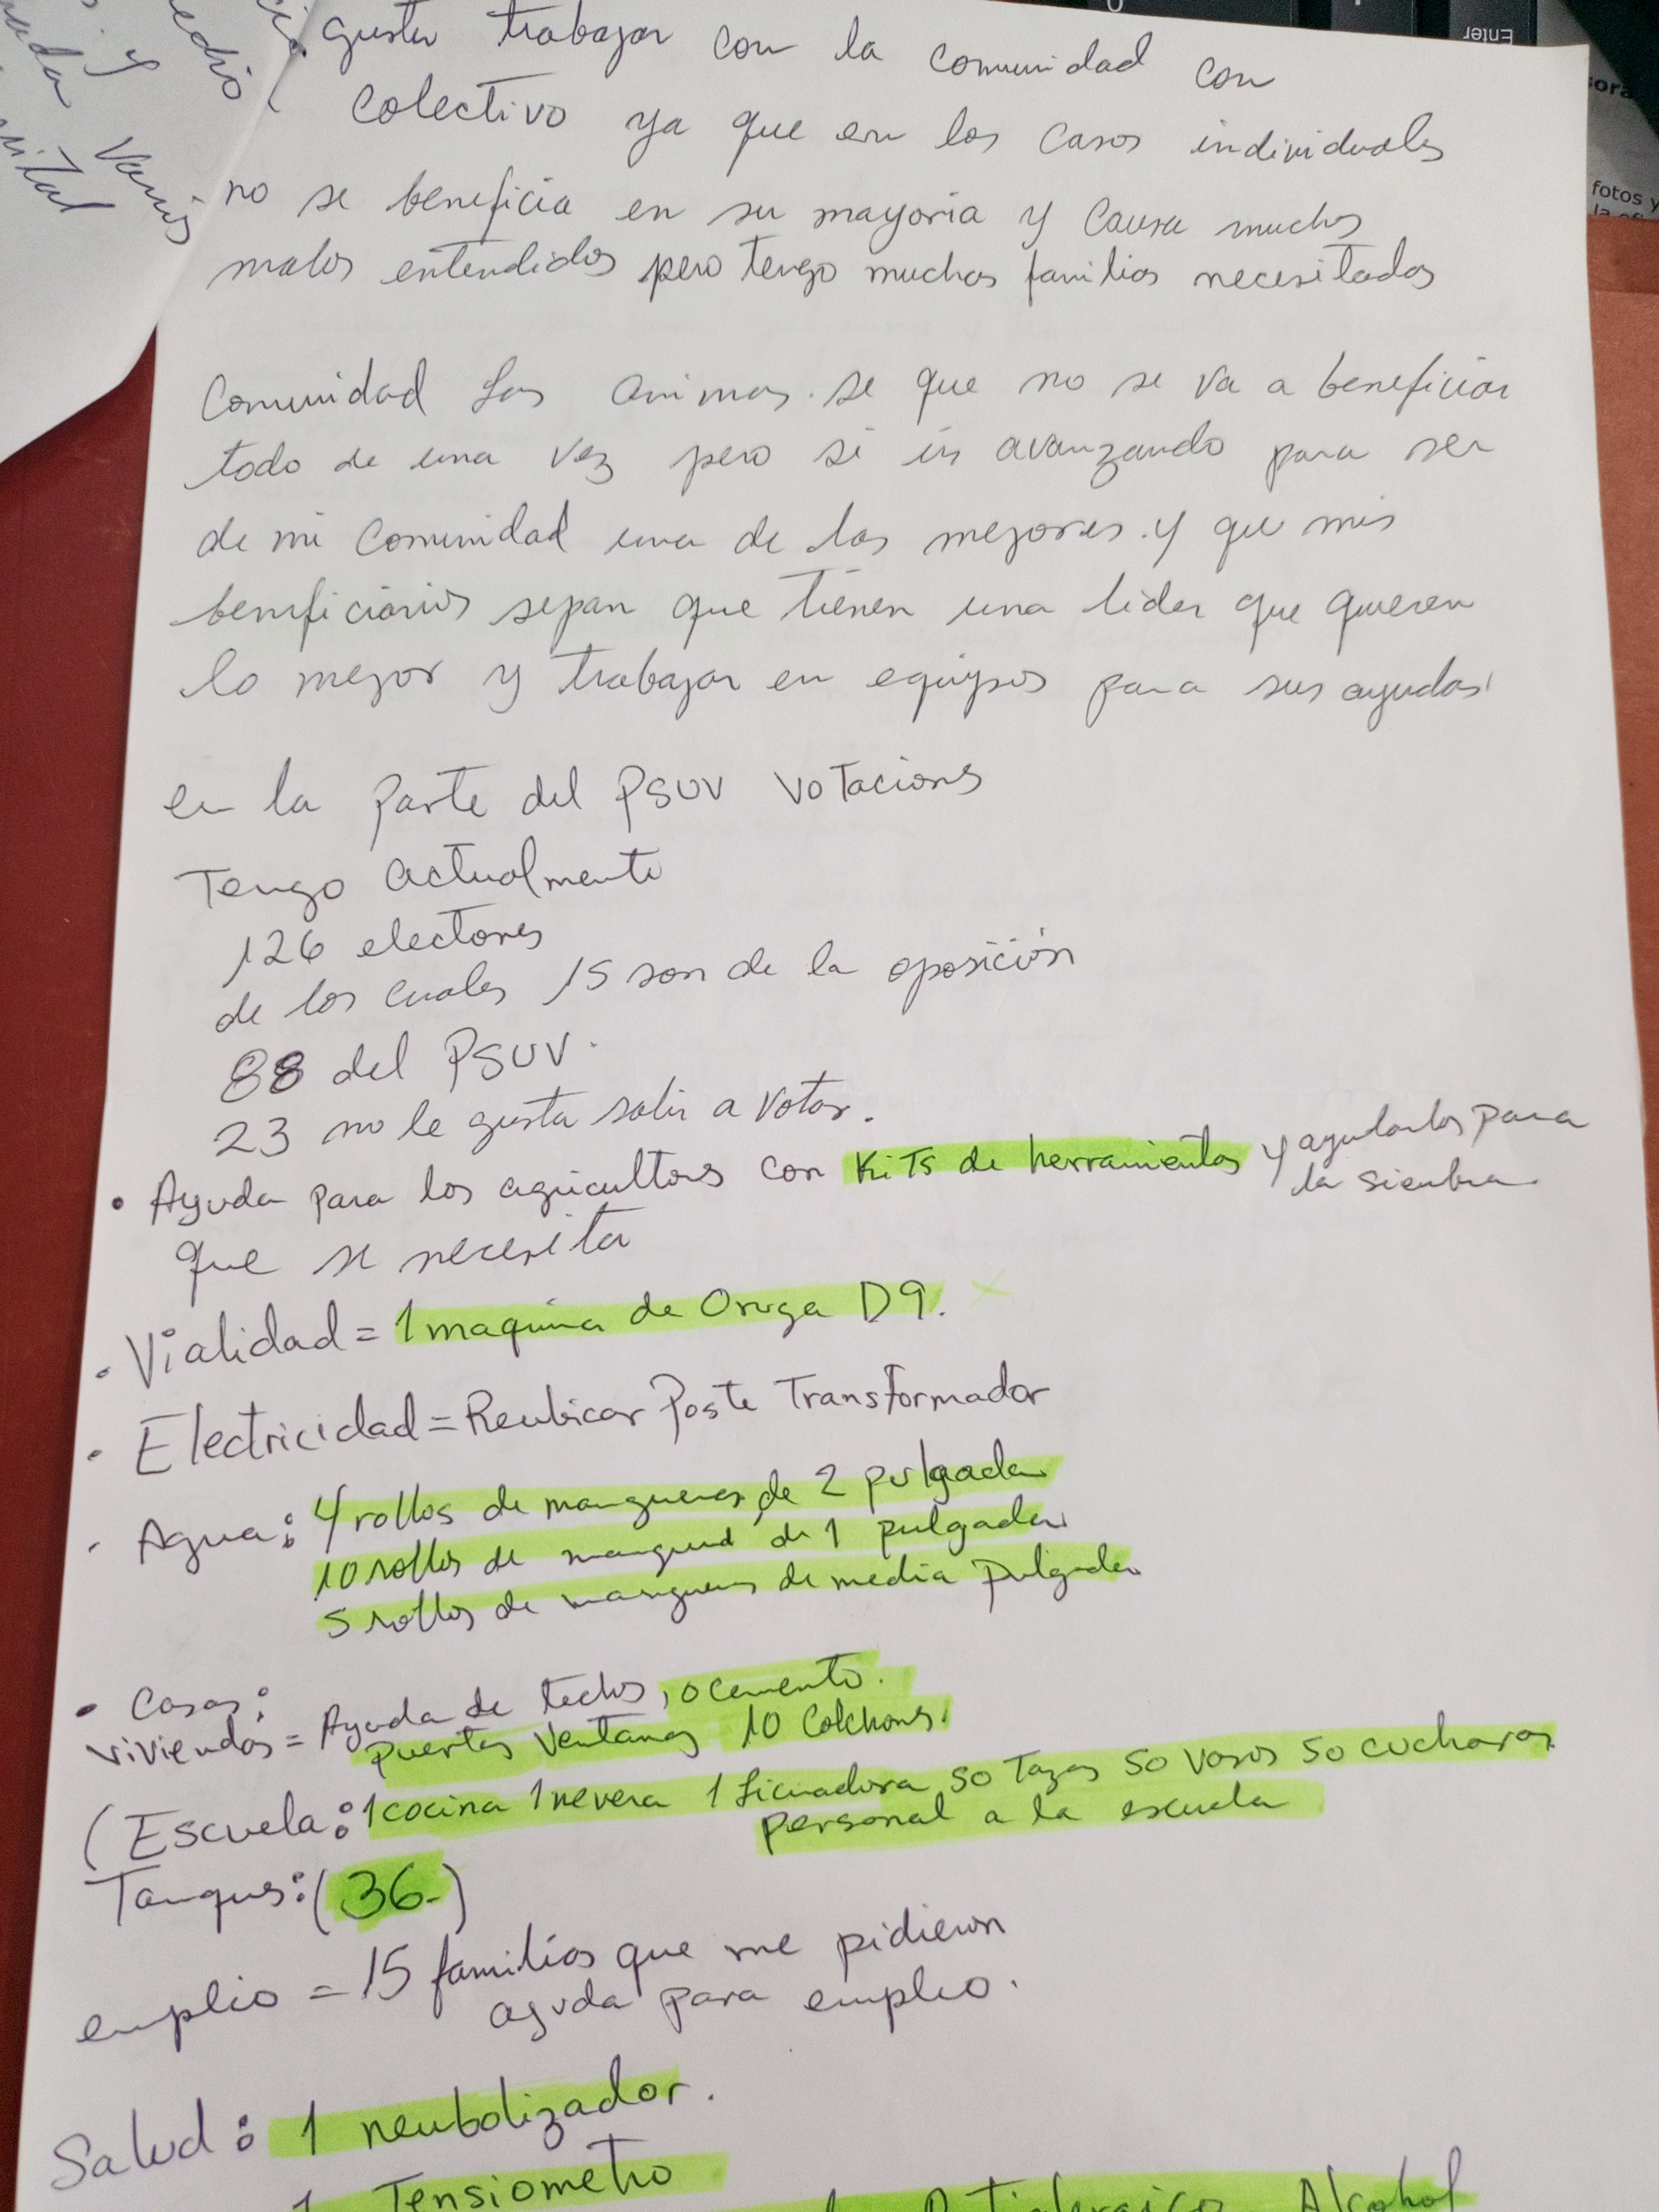 gusta trabajar con la comunidad con
colectivo ya que en los casos individuales
no se beneficia en su mayoria y causa muchos
malos entendidos pero tengo muchas familias necesitadas
Comunidad Las Animas. se que no se va a beneficiar
todo de una vez pero si ir avanzando para ser
de mi comunidad una de las mejores. y que mis
beneficiarios sepan que tienen una lider que quieren
lo mejor y trabajar en equipos para sus ayudas
en la parte del PSUV votaciones
Tengo actualmente
126 electores
de los cuales 15 son de la oposición
88 del PSUV.
23 no le gusta salir a votar.
• Ayuda para los agricultores con Kits de herramientas y ayudarlos para
la siembra.
que se necesita
• Vialidad = 1 maquina de Oruga D9. x
• Electricidad = Reubicar Poste Transformador
• Agua: 4 rollos de mangueras de 2 pulgada
10 rollos de manguera de 1 pulgada
5 rollos de mangueras de media pulgada
• Casas:
viviendas = Ayuda de techos, o cemento.
puertas ventanas 10 Colchones.
(Escuela: 1 cocina 1 nevera 1 Licuadora 50 Tazas 50 vasos 50 cucharas
personal a la escuela
Tanques: (36.)
emplio = 15 familias que me pidieron
ayuda para empleo.
Salud: 1 neubolizador.
1 Tensiometro
Alcohol
Enter
fotos y